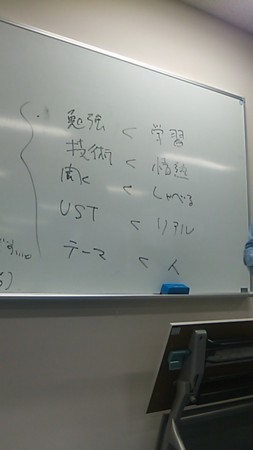 勉強 < 学習
技術 < 情熱
聞く < しゃべる
UST < リアル
テーマ < 人